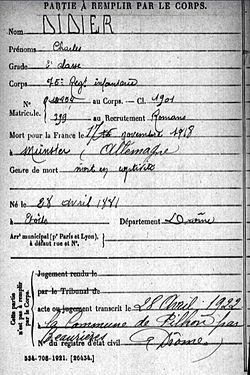 PARTIE À REMPLIR PAR LE CORPS.
Nom DIDIER
Prénoms Charles
Grade 2e classe
Corps 45e Regt infanterie
N° au Corps. — Cl. 1901
Matricule. 399 au Recrutement Romans
Mort pour la France le 17 novembre 1918
à Münster (Allemagne
Genre de mort mort en captivité
Né le 28 avril 1881
à Etoile Département Drôme
Arrt municipal (pr Paris et Lyon),
à défaut rue et N°.
Cette partie
n'est pas à remplir
par le Corps.
Jugement rendu le
par le Tribunal de
acte ou jugement transcrit le 28 Avril 1922
à la Commune de Pilhon par
Beaurières
N° du registre d'état civil (Drôme)
534-708-1921. [26434.]